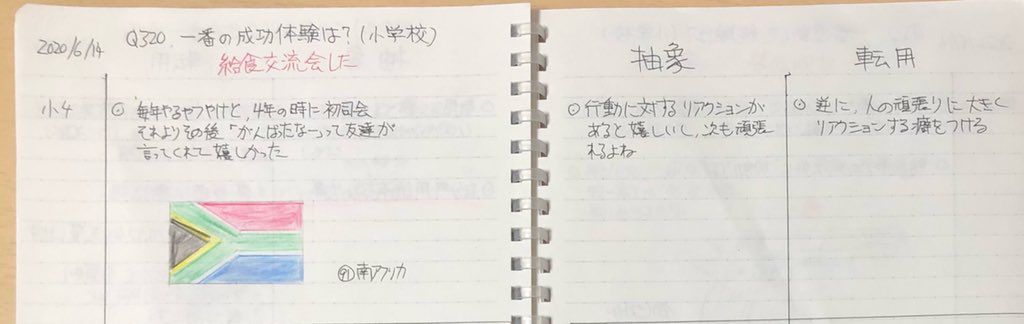 2020/6/14
Q320 一番の成功体験は?(小学校)
給食交流会した
小4
① 毎年やるやつやけど,4年の時に初司会
それよりその後「がんばったなー」って友達が
言ってくれて嬉しかった
㉑南アフリカ
抽象
① 行動に対するリアクションが
あると嬉しいし、次も頑張
れるよね
転用
① 逆に,人の頑張りに大きく
リアクションする癖をつける